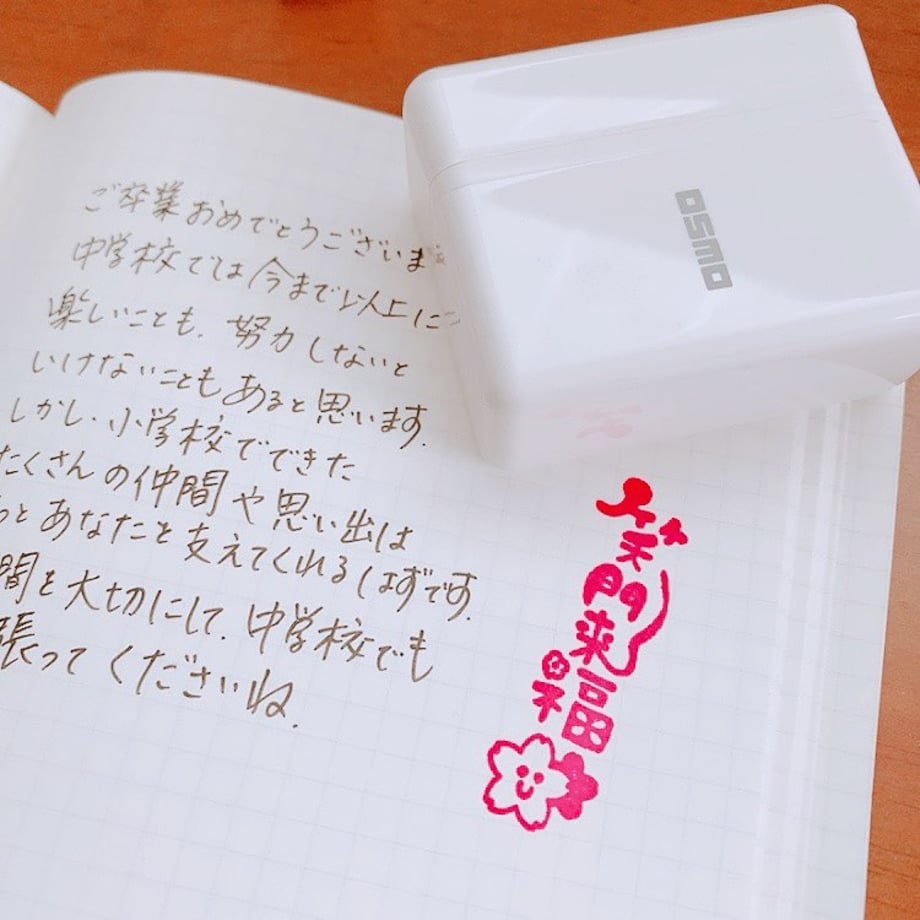 ご卒業おめでとうございま
中学校では今まで以上に
楽しいことも、努力しないと
いけないこともあると思います。
しかし、小学校でできた
たくさんの仲間や思い出は
とあなたを支えてくれるはずです。
間を大切にして、中学校でも
張ってくださいね。
OSMO
笑門来福